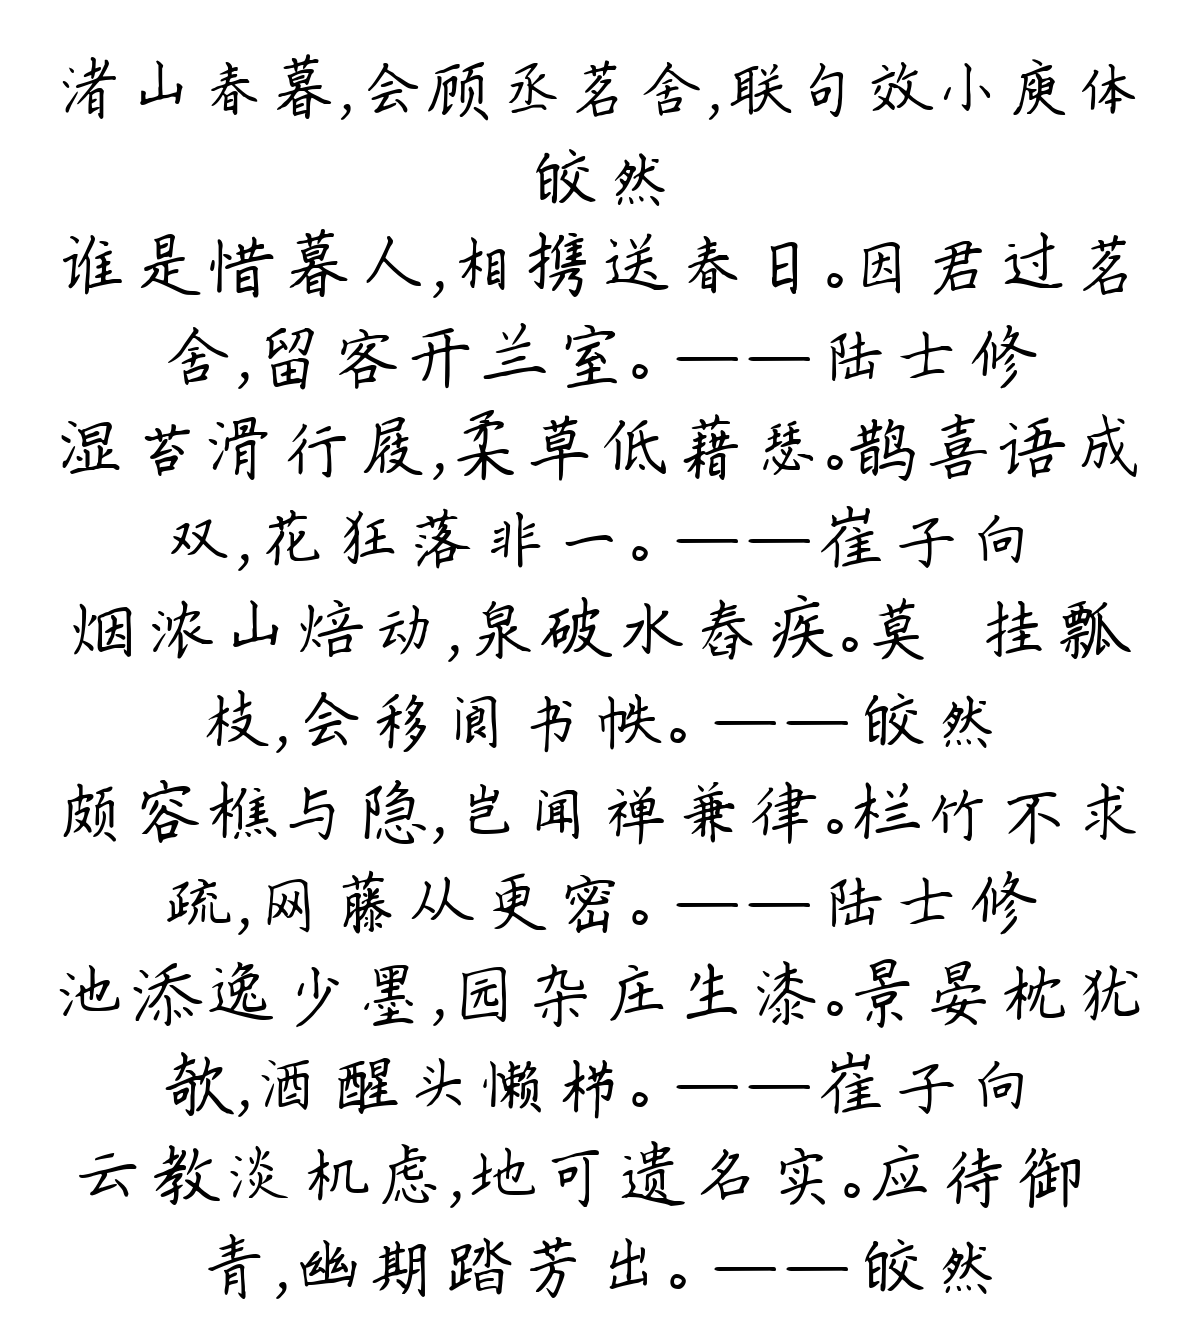 渚山春暮,会顾丞茗舍,联句效小庾体
皎然
谁是惜暮人,相携送春日。因君过茗
舍,留客开兰室。——陆士修
湿苔滑行屐,柔草低藉瑟。鹊喜语成
双,花狂落非一。——崔子向
烟浓山焙动,泉破水舂疾。莫 挂瓢
枝,会移阆书帙。——皎然
颇容樵与隐,岂闻禅兼律。栏竹不求
疏,网藤从更密。——陆士修
池添逸少墨,园杂庄生漆。景晏枕犹
欹,酒醒头懒栉。——崔子向
云教淡机虑,地可遗名实。应待御
青,幽期踏芳出。——皎然